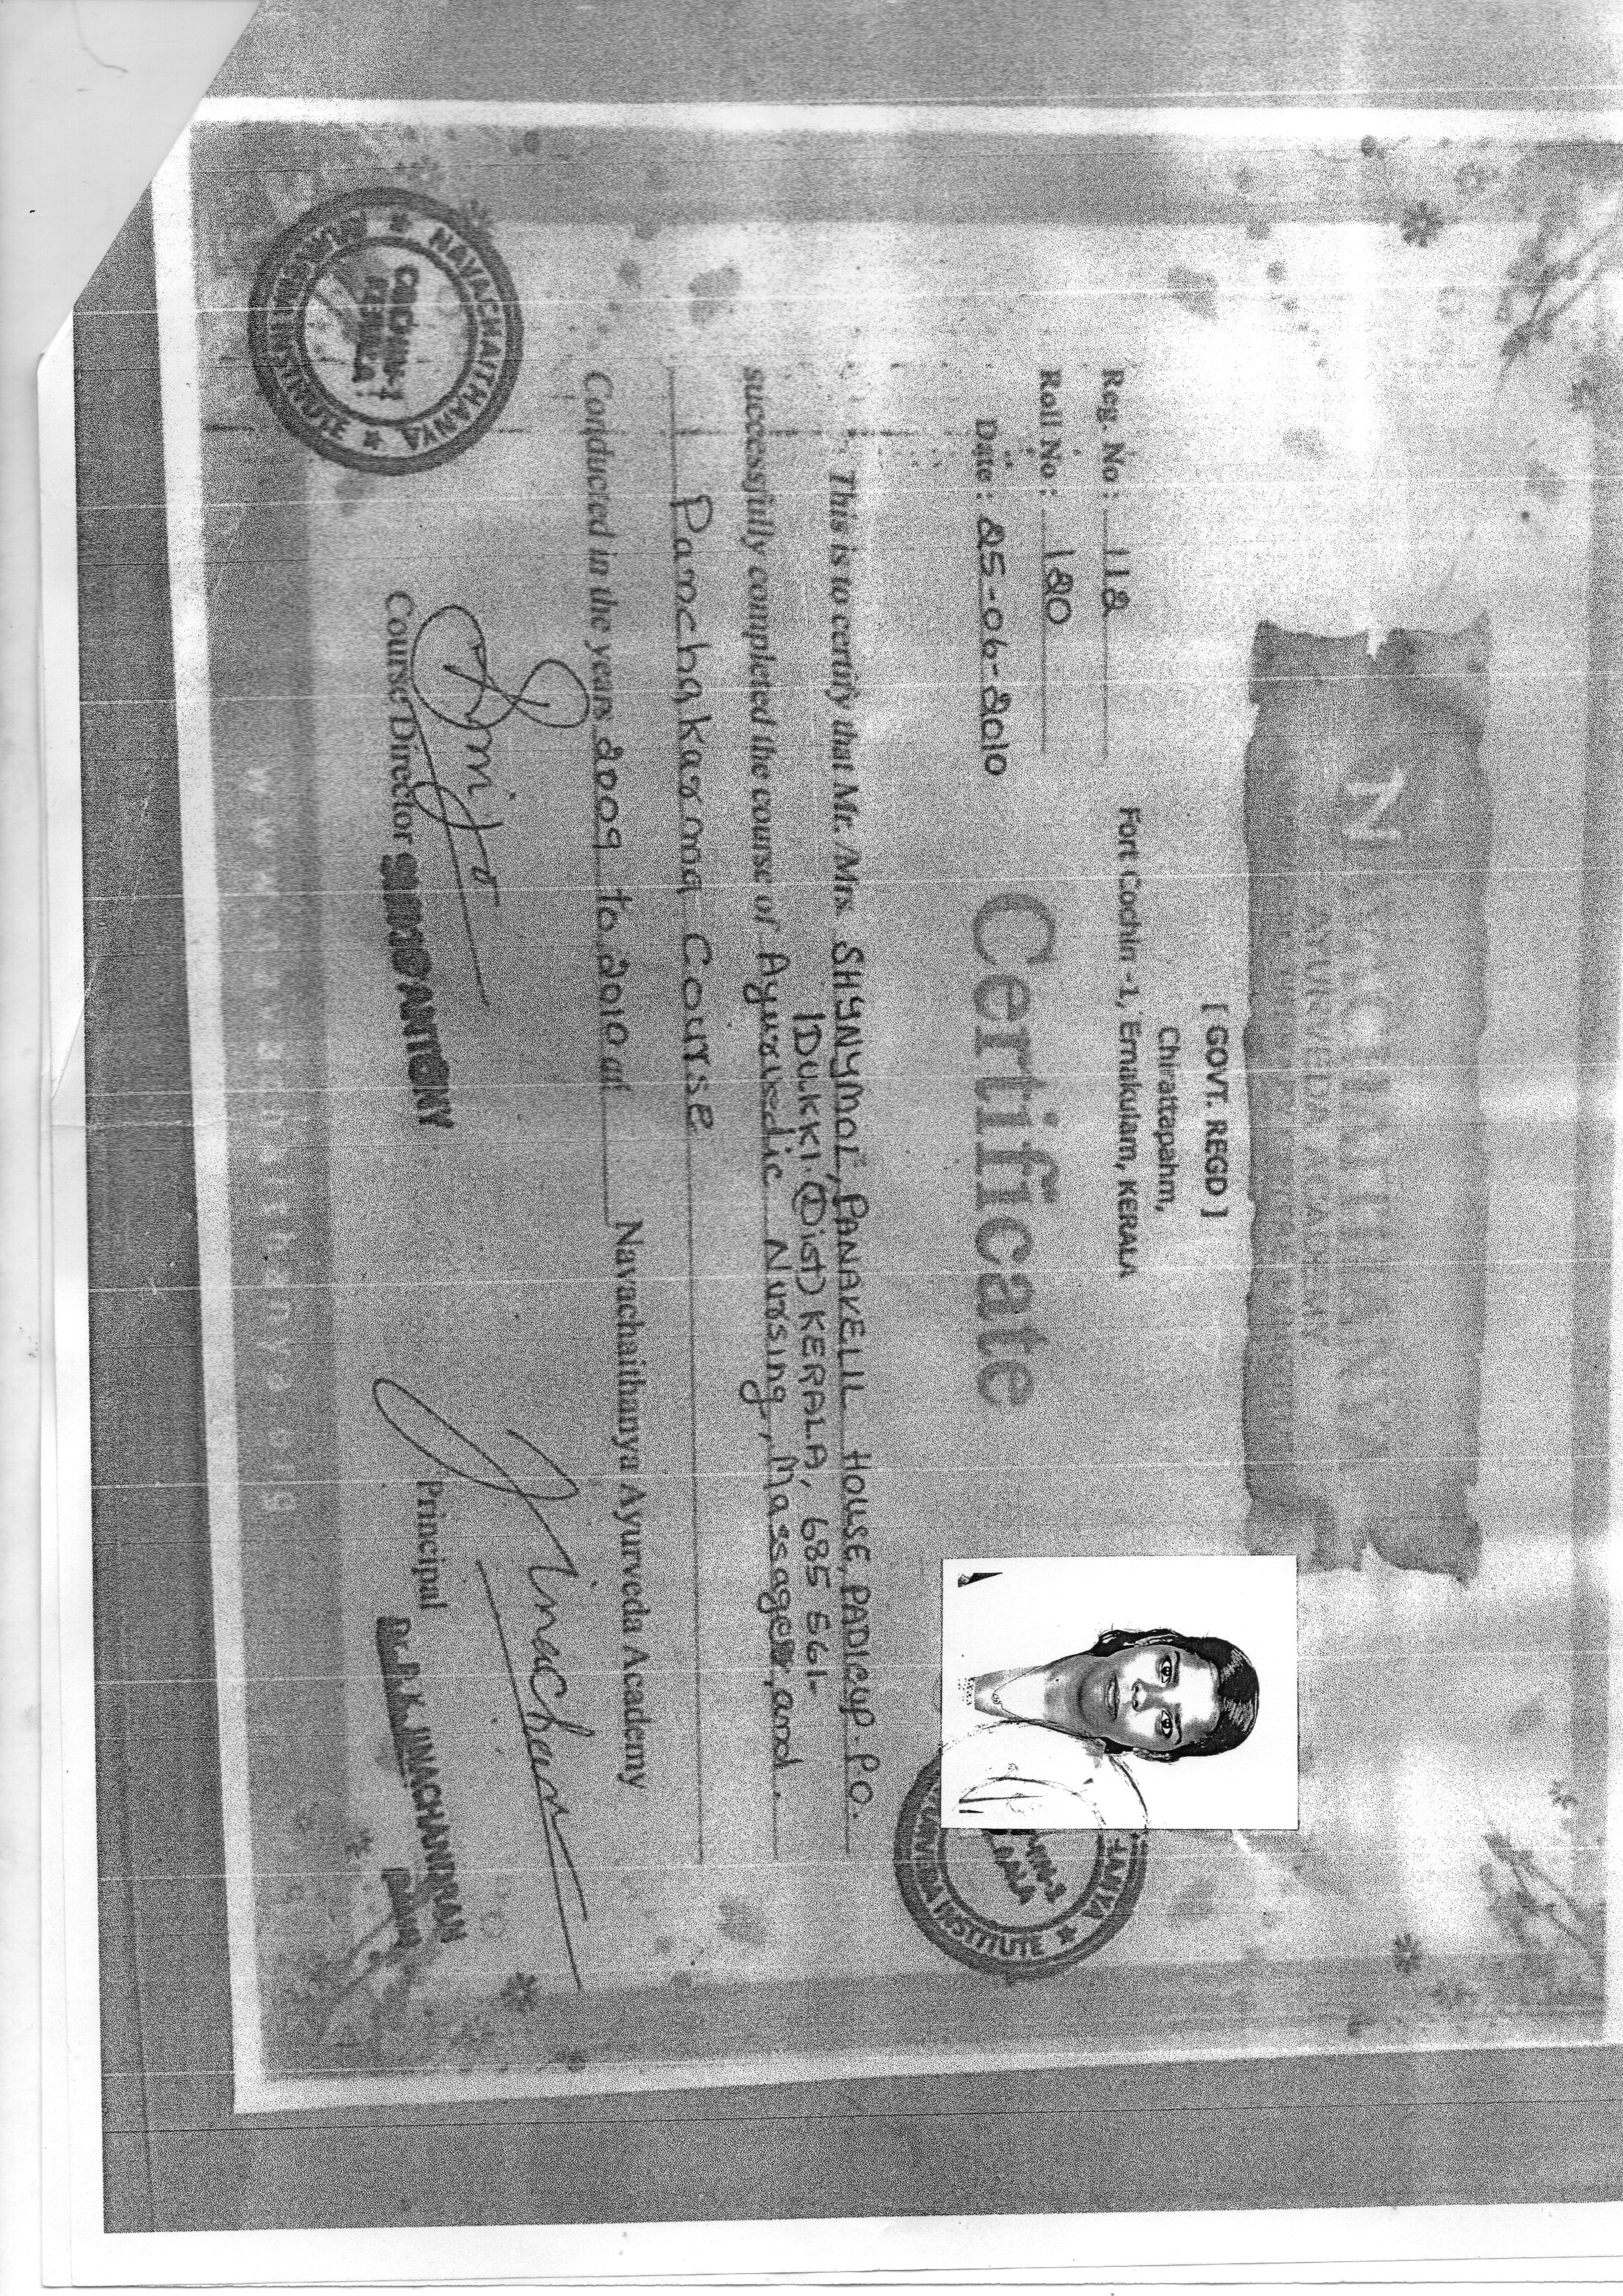 [ GOVT. REGD ]
Chirattapahm,
Fort Cochin -1, Ernakulam, KERALA
Reg. No : 112
Roll No : 120
Date : 25-06-2010
Certificate
This is to certify that Mr. /Mrs. SHYNYMOL, PANAKELIL HOUSE, PADICUP. P.O.
IDUKKI. (Dist) KERALA, 685 561-
successfully completed the course of Ayurvedic Nursing, Massager, and.
Panchakarma Course
Conducted in the years 2009 to 2010 at Navachaithanya Ayurveda Academy
Course Director
ANTONY
Principal
Dr. P. K. JINACHANDRAN
NAVACHAITHANYA
INSTITUTE
COCHIN-1
KERALA
ANYA
INSTITUTE